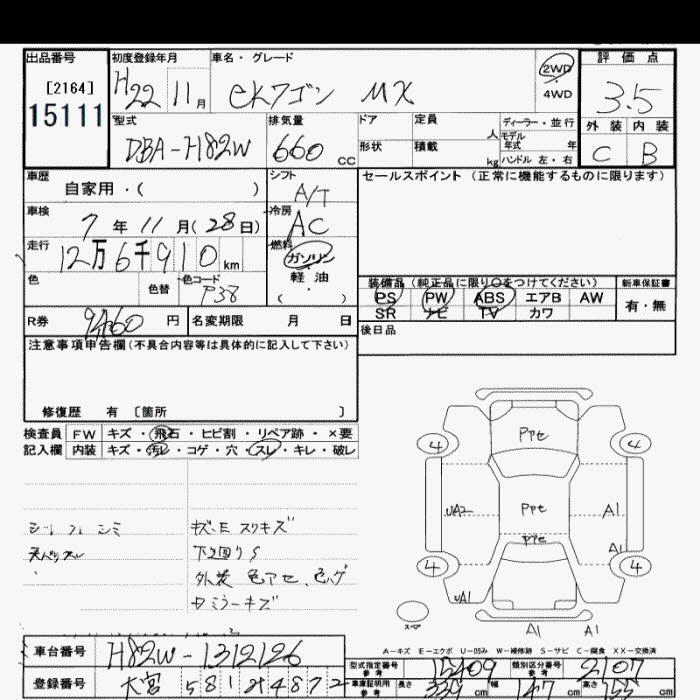 出品番号 初度登録年月 車名・グレード 2WD 評価点
[2164] H22 11月 eKワゴン MX 4WD 3.5
15111 型式 排気量 ドア 定員 人 ディーラー・並行 外装 内装
DBA-H82W 660 CC 形状 積載 kg モデル年式 年 ハンドル 左・右 C B
車歴 自家用・( ) シフト A/T セールスポイント(正常に機能するものに限ります)
車検 7年11月(28日) 冷房 AC
走行 12万6千910km 燃料 ガソリン
軽油
色 色替 色コード P38 ( ) 装備品(純正品に限り○をつけてください) 新車保証書
PS PW ABS エアB AW 有・無
SR ナビ TV カワ
R券 円 名変期限 月 日 後日品
注意事項申告欄(不具合内容等は具体的に記入して下さい)
修復歴 有 [箇所 ]
検査員 FW キズ・飛石・ヒビ割・リペア跡・×要
記入欄 内装 キズ・汚レ・コゲ・穴・スレ・キレ・破レ
4 Ppte 4
UA2 Ppte A1
Ppte A1
シート シミ キズ・E スリキズ
天バリスレ 下廻りS
4 4
外装 色アセ、色ハゲ
UA1
ミラーキズ
スペア
A1 A1
A-キズ E-エクボ U-凹み W-補修跡 S-サビ C-腐食 XX-交換済
車台番号 H82W-1312126
型式指定番号 参考 15409 類別区分番号 参考 2107
登録番号 大宮 581 4872
車庫証明用 参考 長さ 339cm 幅 147cm 高さ 155cm